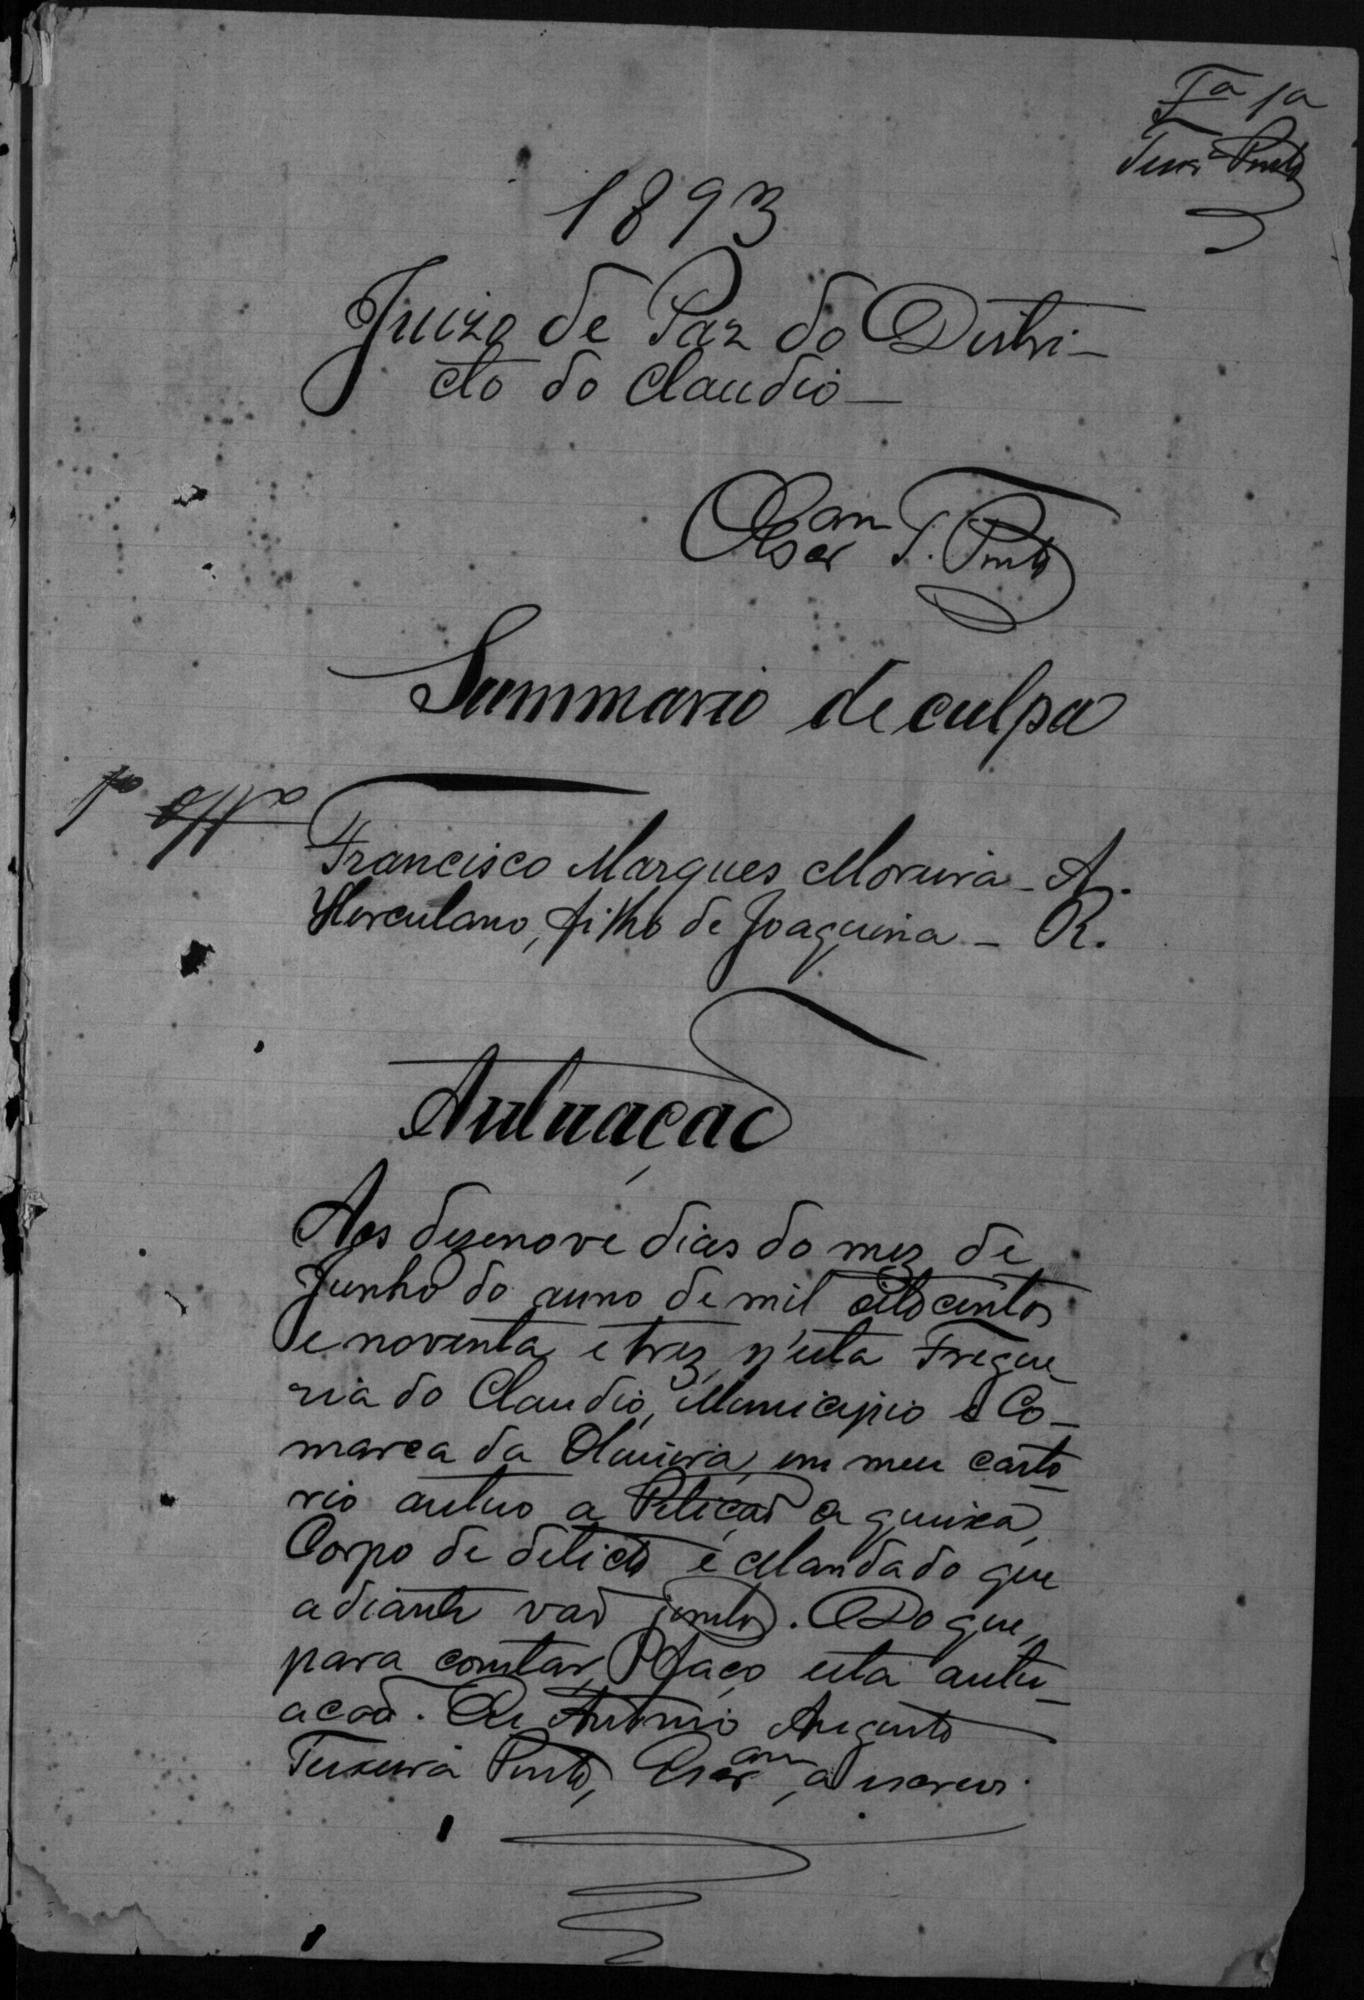 Fª 1ª
Teixrª Pinto
1893
Juizo de Paz do Distri-
cto do Claudio -
O Escram T. Pinto
Summario de culpa
1º Offº
Francisco Marques Moreira - A.
Herculano, filho de Joaquina - R.
Autuação
Aos dezenove dias do mez de
Junho do anno de mil oitocentos
e noventa e trez, n'esta Fregue
zia do Claudio, Municipio e Co-
marca da Oliveira, em meu carto
rio autuo a Petição a queixa,
Corpo de delicto e Mandado que
adiante vão juntos. Do que,
para constar, faço esta autu-
acão. Eu Antonio Augusto
Teixeira Pinto, Escram, a escrevi.